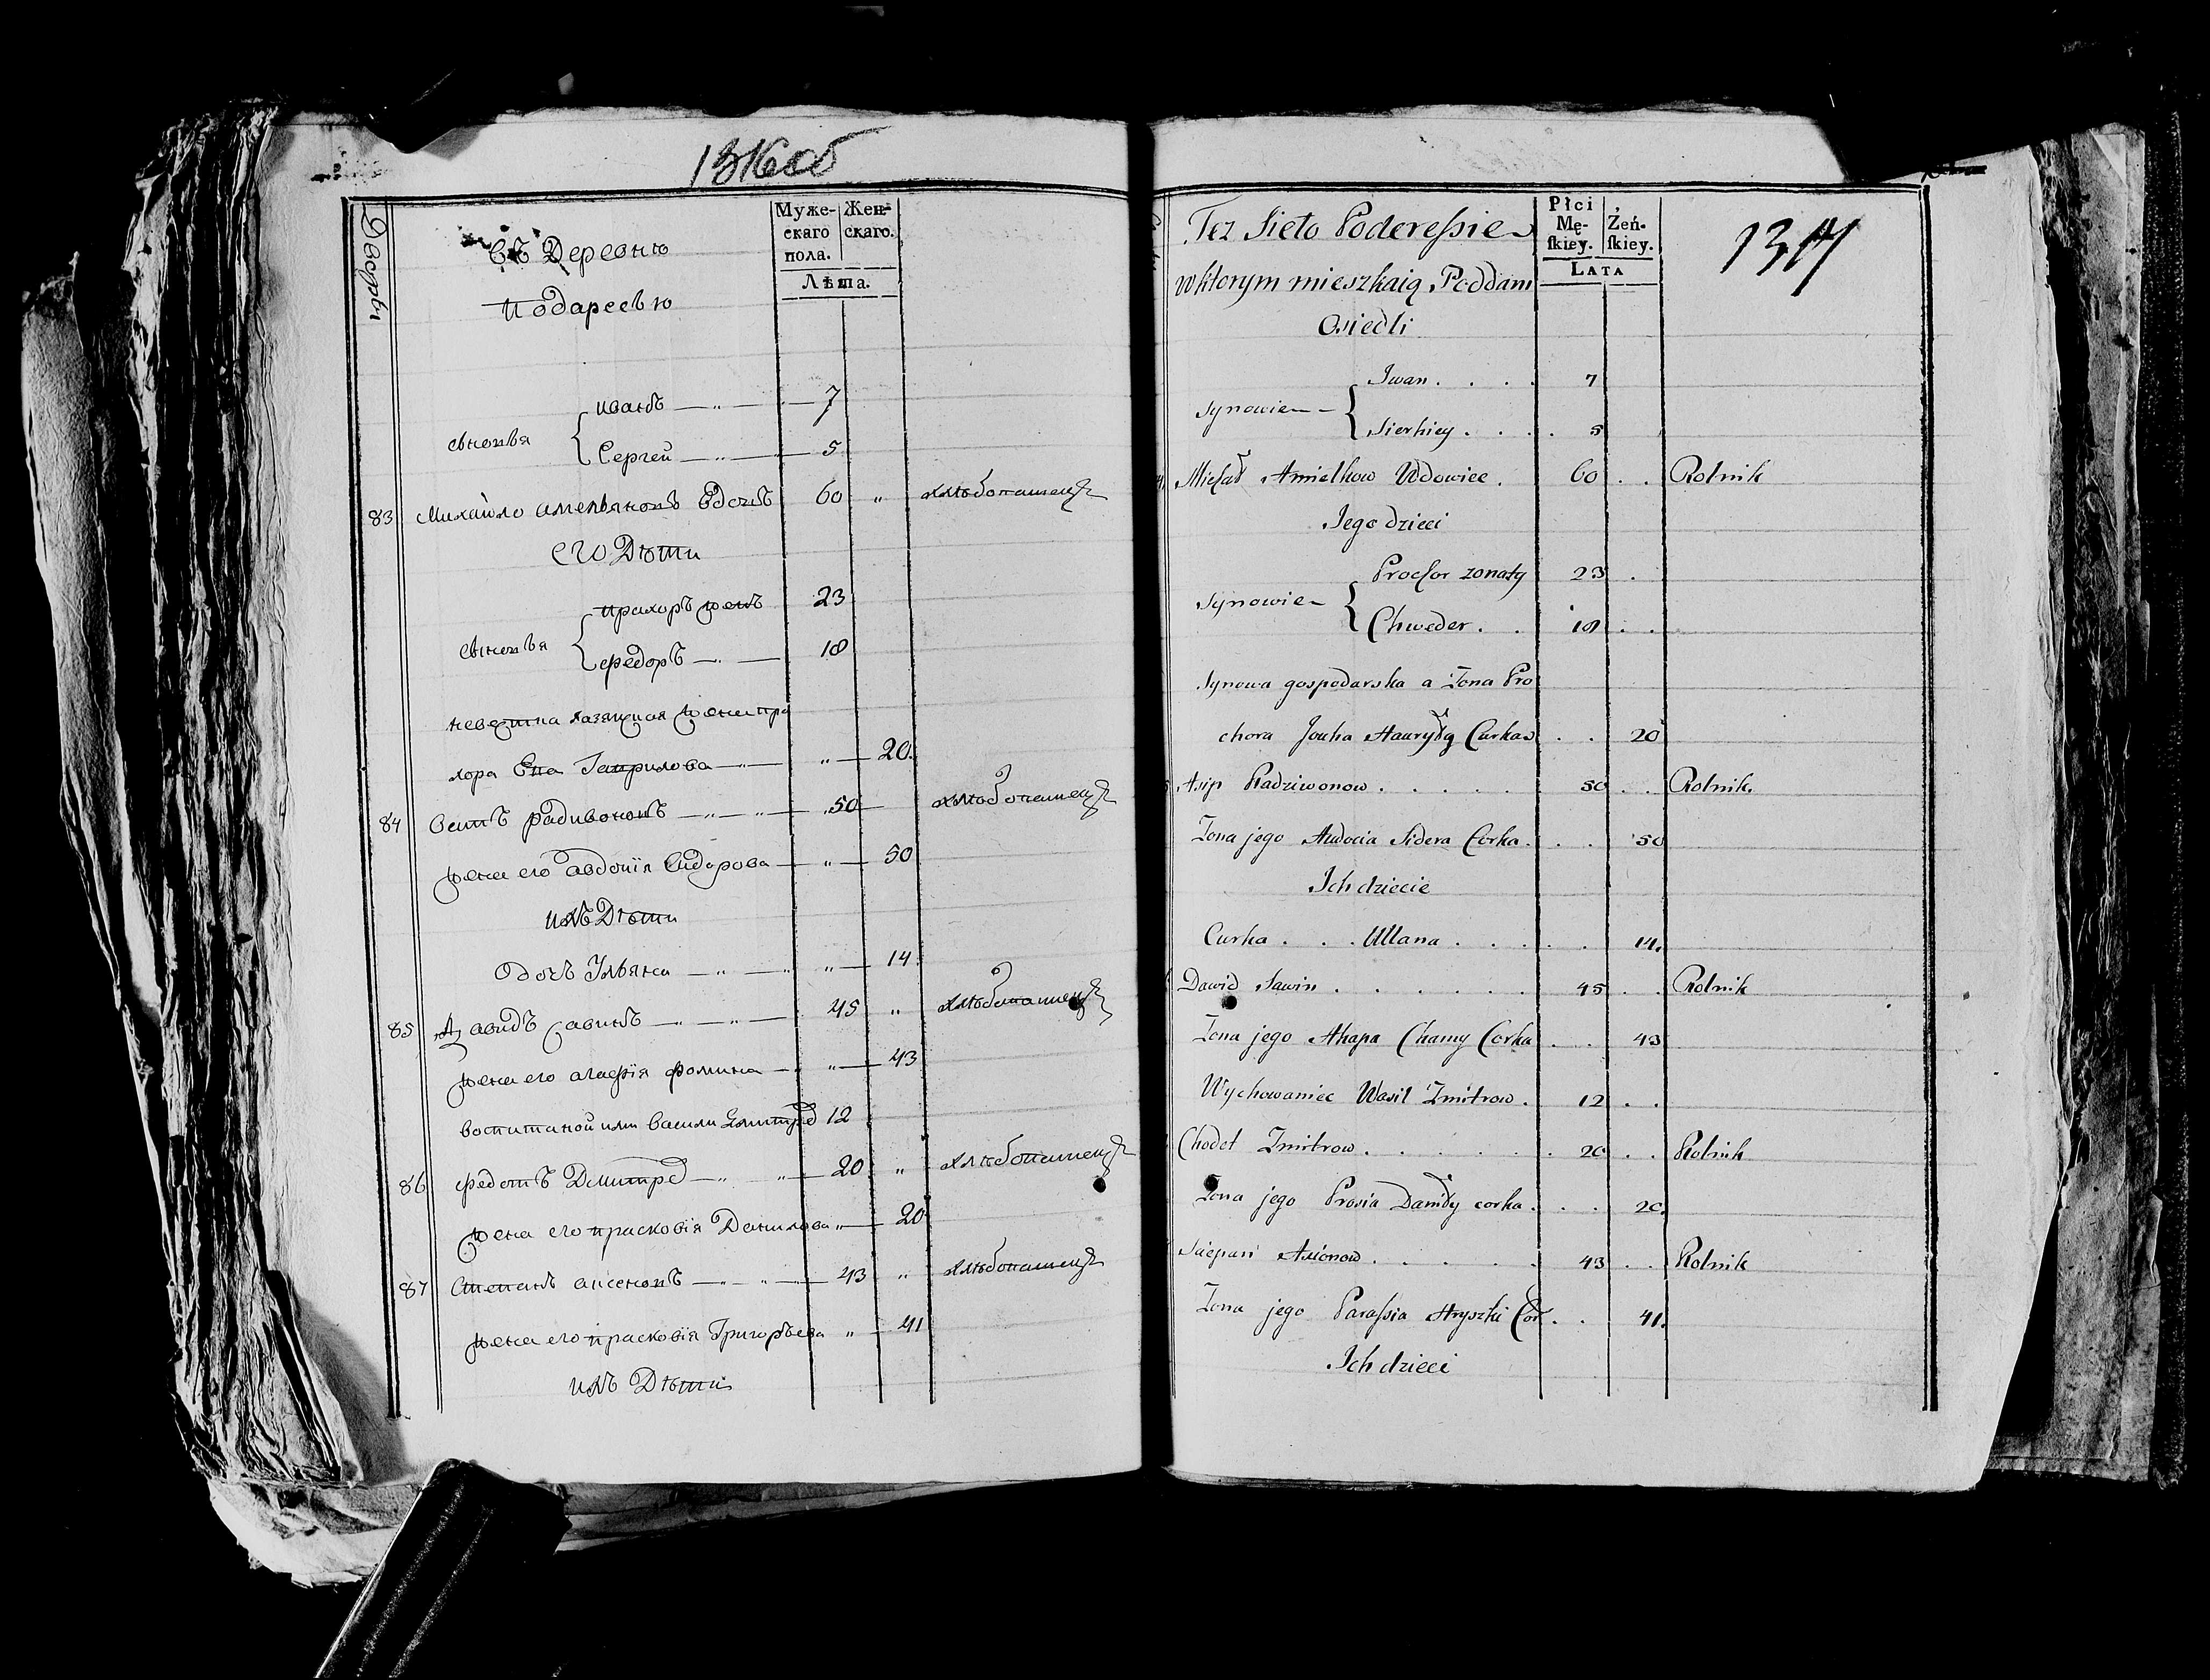 1316об
Дворы
Въ Деревню
Подаресью
Муже-
скаго
пола.
Жен-
скаго.
Лѣта.
сыновья
Иванъ 7
Сергей 5
83 Михайло Амельяновъ Вдовъ 60 " хлѣбопашецъ
его Дѣти
сыновья
Прахоръ женъ 23
Федоръ 18
невестка хазяиская жена Пра
хора Гаврилова " 20.
84 Осипъ Радивоновъ 50 хлѣбопашецъ
жена его Авдотія Сидорова " 50
ихъ Дѣти
Дочь Ульяна " 14
85 Давидъ Савинъ 45 " хлѣбопашецъ
жена его Агафія Фомина " 43
воспитаной Васили 12
86 Федотъ Дмитре 20 " хлѣбопашецъ
жена его Прасковія Данилова " 20
87 Степанъ Аксеновъ 43 " хлѣбопашецъ
жена его Прасковія Григорьева " 41
ихъ Дѣти
1317
Też Sieło Poderessie
w ktorym mieszkaią Poddani
Osiedli
Płci
Mę-
skiey.
Żeń-
skiey.
Lata
Synowie
Iwan . . . . 7
Sierhiey . . . . 5
Michał Amielkow Wdowiec . 60 . . Rolnik
Jego dzieci
Synowie
Prochor zonaty 23 .
Chweder . . 18 . .
Synowa gospodarska a Zona Pro
chora Jouha Hauryły Curka . . 20
Asip Radziwonow . . . . . 50 . . Rolnik
Zona jego Audocia Sidera Corka . . . 50
Ich dziecie
Curka . . . Ullana . . . . . 14.
Dawid Sawin . . . . . . 45 . . Rolnik
Zona jego Ahapa Chamy Corka . . 43
Wychowaniec Wasil Zmitrow . 12 . .
Chodot Zmitrow . . . . . . 20 . . Rolnik
Zona jego Prosia Daniły corka . . . 20.
Sciepan Axionow . . . . . . 43 . . Rolnik
Zona jego Parassia Hryszki Cor . . 41.
Ich dzieci